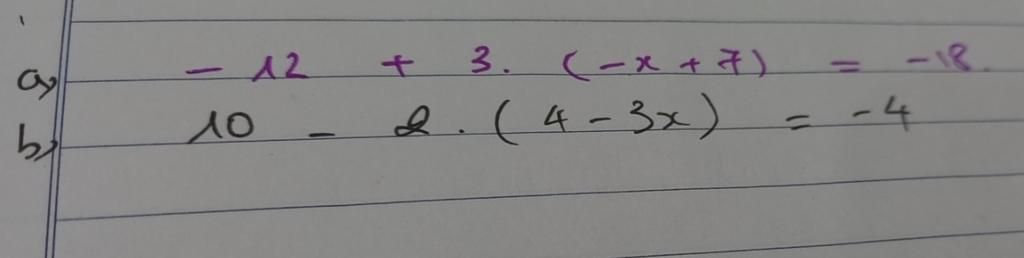 a) - 12 + 3. (-x + 7) = -18.
b) 10 - 2. (4 - 3x) = -4